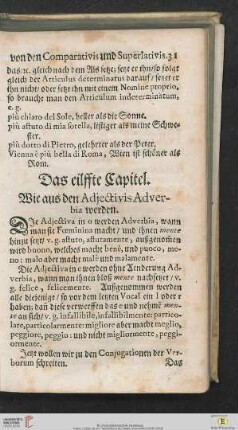 von den Comparativis und Superlativis. 31
das: ꝛc. gleich nach dem Als setze; setze er ihn/ so folgt
gleich der Articulus determinatus darauf / setzet er
ihn nicht/ oder setzt ihn mit einem Nomine proprio,
so braucht man den Articulum indeterminatum,
e. g.
più chiaro del Sole, heller als die Sonne.
più astuto di mia sorella, listiger als meine Schwe-
ster.
più dotto di Pietro, gelehrter als der Peter,
Vienna è più bella di Roma, Wien ist schöner als
Rom.
Das eilffte Capitel.
Wie aus den Adjectivis Adver-
bia werden.
DIe Adjectiva in o werden Adverbia, wann
man sie Fœminina macht / und ihnen mente
hinzu setzt v. g. astuto, astutamente, außgenomen
wird buono, welches macht benè, und poco, mo-
mo: malo aber macht male und malamente.
Die Adjectiva in e werden ohne Änderung Ad-
verbia, wann man ihnen bloß mente nachsetzet / v.
g. felice, felicemente. Außgenommen werden
alle diejenige / so vor dem letzten Vocal ein l oder r
haben; dan diese verwerffen das e und nehmē men-
te an sich/ v. g. infallibile, infallibilmente: partico-
lare, particolarmente: migliore aber macht meglio,
peggiore, peggio: und nicht migliormente, peggi-
ormente.
Jetzt wollen wir zu den Conjugationen der Ver-
borum schreiten.
Das